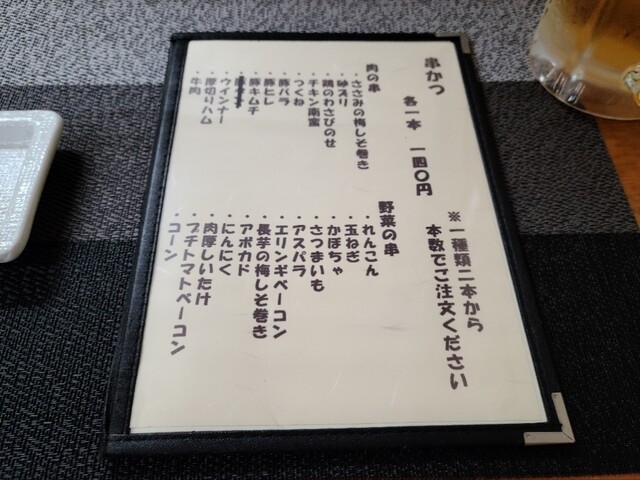 串かつ
各一本 一四〇円
※一種類二本から
本数でご注文ください
肉の串
・ささみの梅しそ巻き
・砂ズリ
・鶏のわさびのせ
・チキン南蛮
・つくね
・豚バラ
・豚ヒレ
・豚キムチ
・ウインナー
・厚切りハム
・牛肉
野菜の串
・れんこん
・玉ねぎ
・かぼちゃ
・さつまいも
・アスパラ
・エリンギベーコン
・長芋の梅しそ巻き
・アボカド
・にんにく
・肉厚しいたけ
・プチトマトベーコン
・コーン